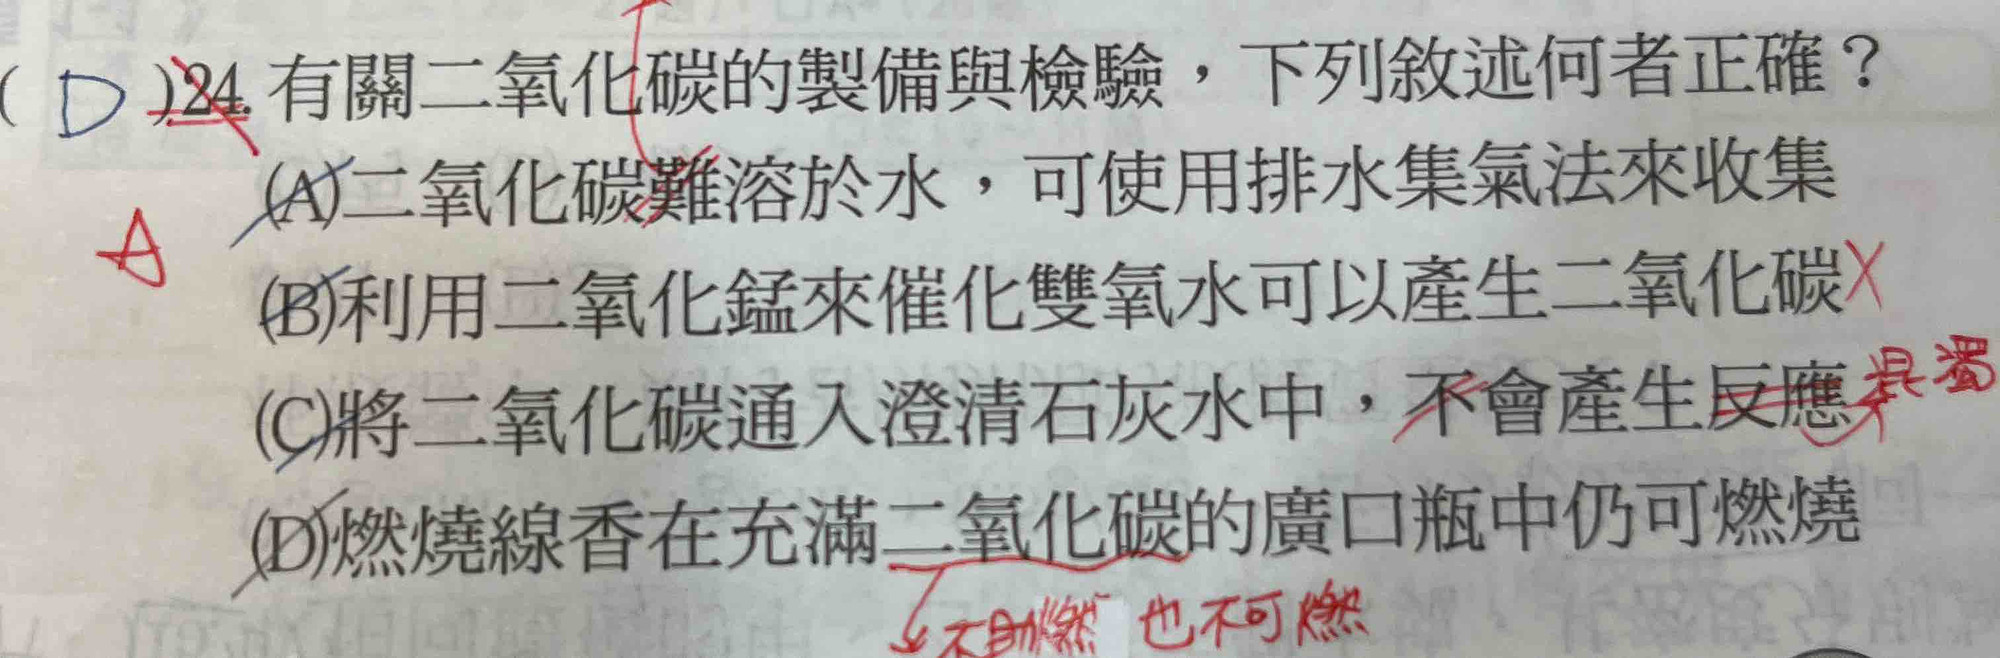 ( D )24. 有關二氧化碳的製備與檢驗，下列敘述何者正確？
(A)二氧化碳難溶於水，可使用排水集氣法來收集
A
(B)利用二氧化錳來催化雙氧水可以產生二氧化碳X
(C)將二氧化碳通入澄清石灰水中，不會產生反應 混濁
(D)燃燒線香在充滿二氧化碳的廣口瓶中仍可燃燒
不助燃 也不可燃